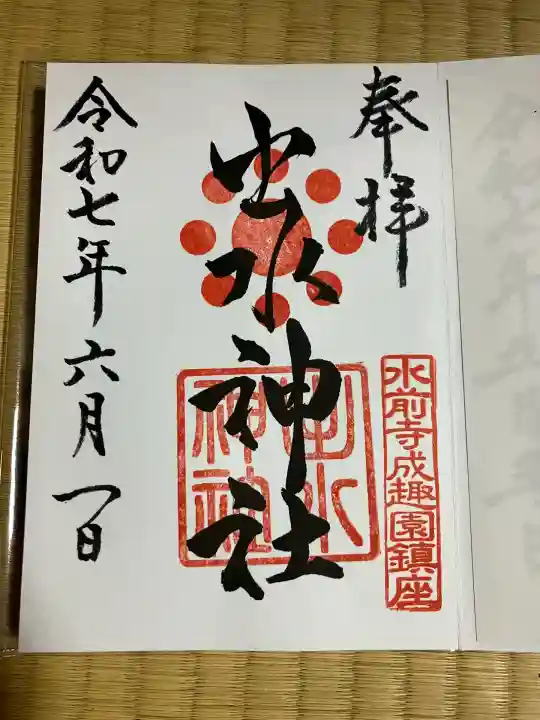 奉拝
水前寺成趣園鎮座
出水神社
出水
神社
令和七年六月一日